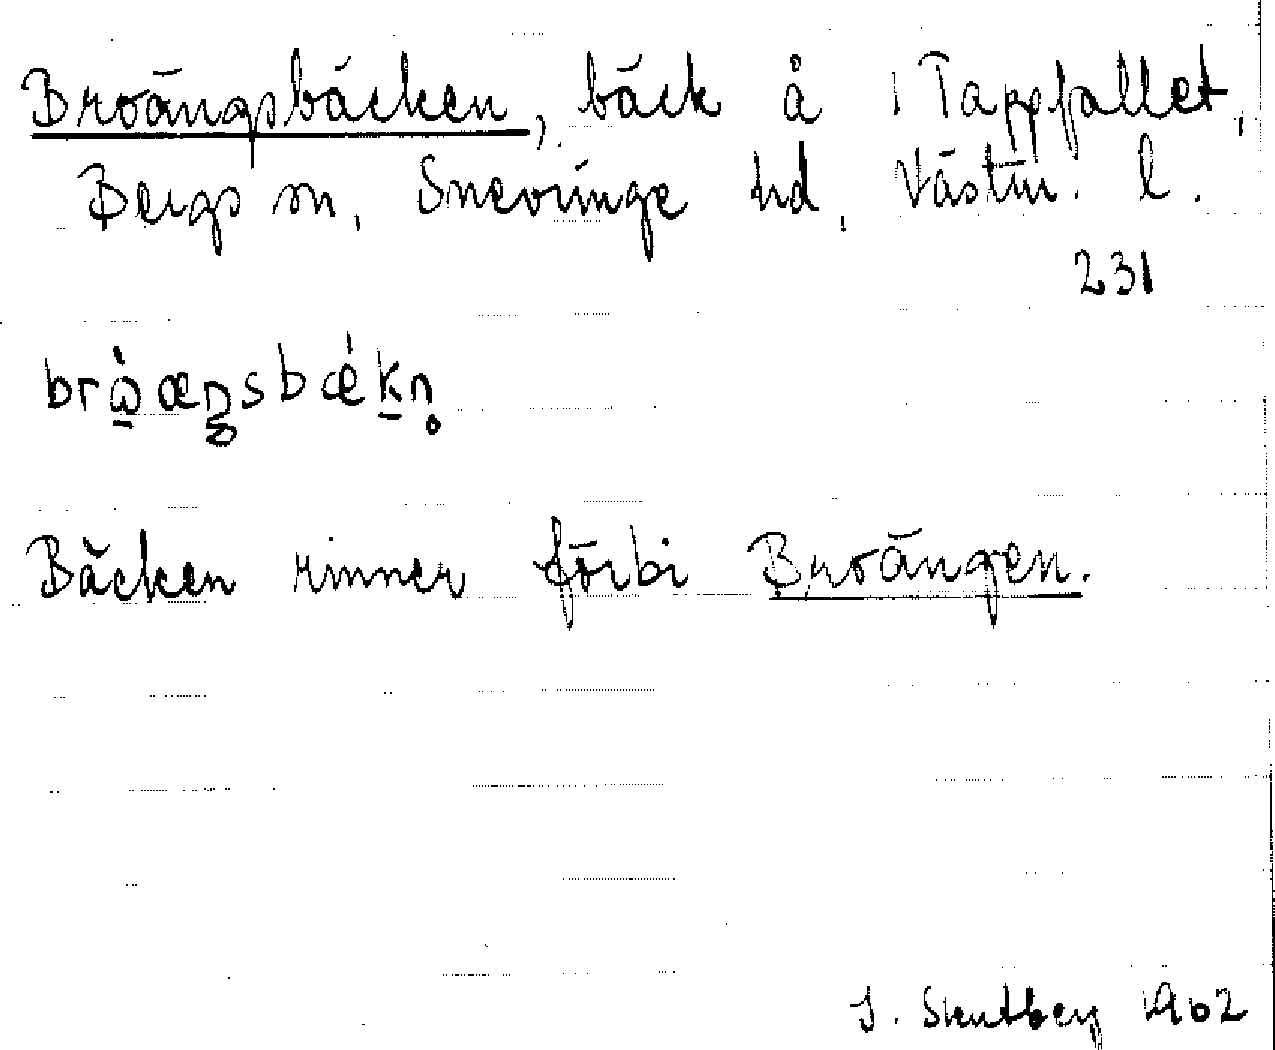 Broängsbäcken, bäck å Tappfallet,
Bergs sn, Snevringe hd, Västm. l.
231
brὼæŋsbǽkn̥
Bäcken rinner förbi Broängen.
J. Skutberg 1962